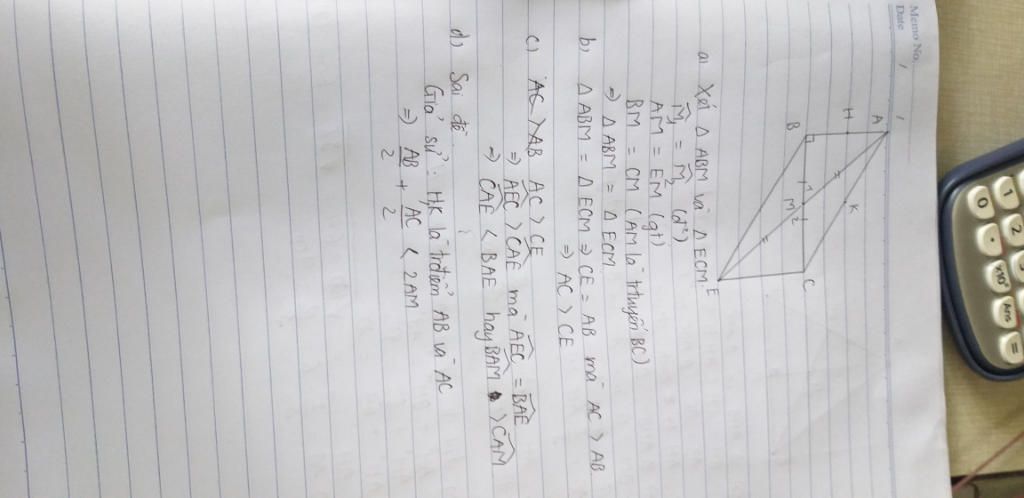 Memo No.
Date
A
H
K
B
1
M
2
C
E
a) Xét Δ ABM và Δ ECM:
M̂₁ = M̂₂ (đ²)
AM = EM (gt)
BM = CM (AM là trtuyến BC)
⇒ Δ ABM = Δ ECM
b) Δ ABM = Δ ECM ⇒ CE = AB mà AC > AB
⇒ AC > CE
c) AC > AB AC > CE
⇒ AEC > CAE mà AEC = BAE
⇒ CAE < BAE hay BAM > CAM
d) Sai đề
Giả sử: H,K là trđiểm AB và AC
⇒ AB/2 + AC/2 < 2AM
1
2
0
.
×10ˣ
Ans
=